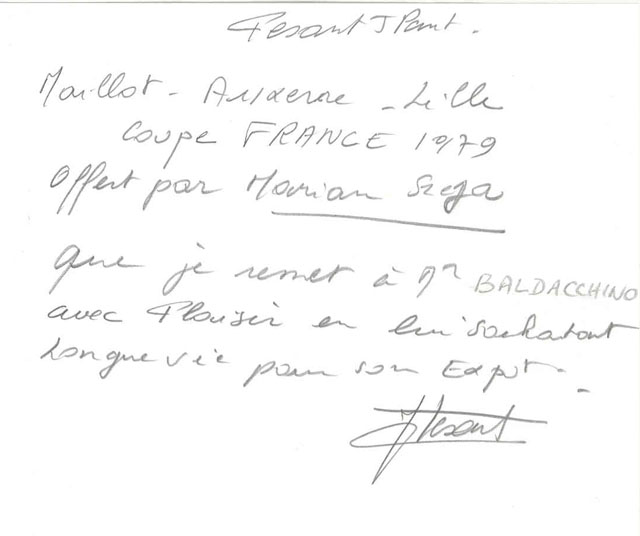 Pesant J Paul.
Maillot - Auxerre - Lille
Coupe FRANCE 1979
Offert par Marian Szeja
que je remet à Mr BALDACCHINO
avec Plaisir en lui souhaitant
Longue vie pour son Expo.
JPesant